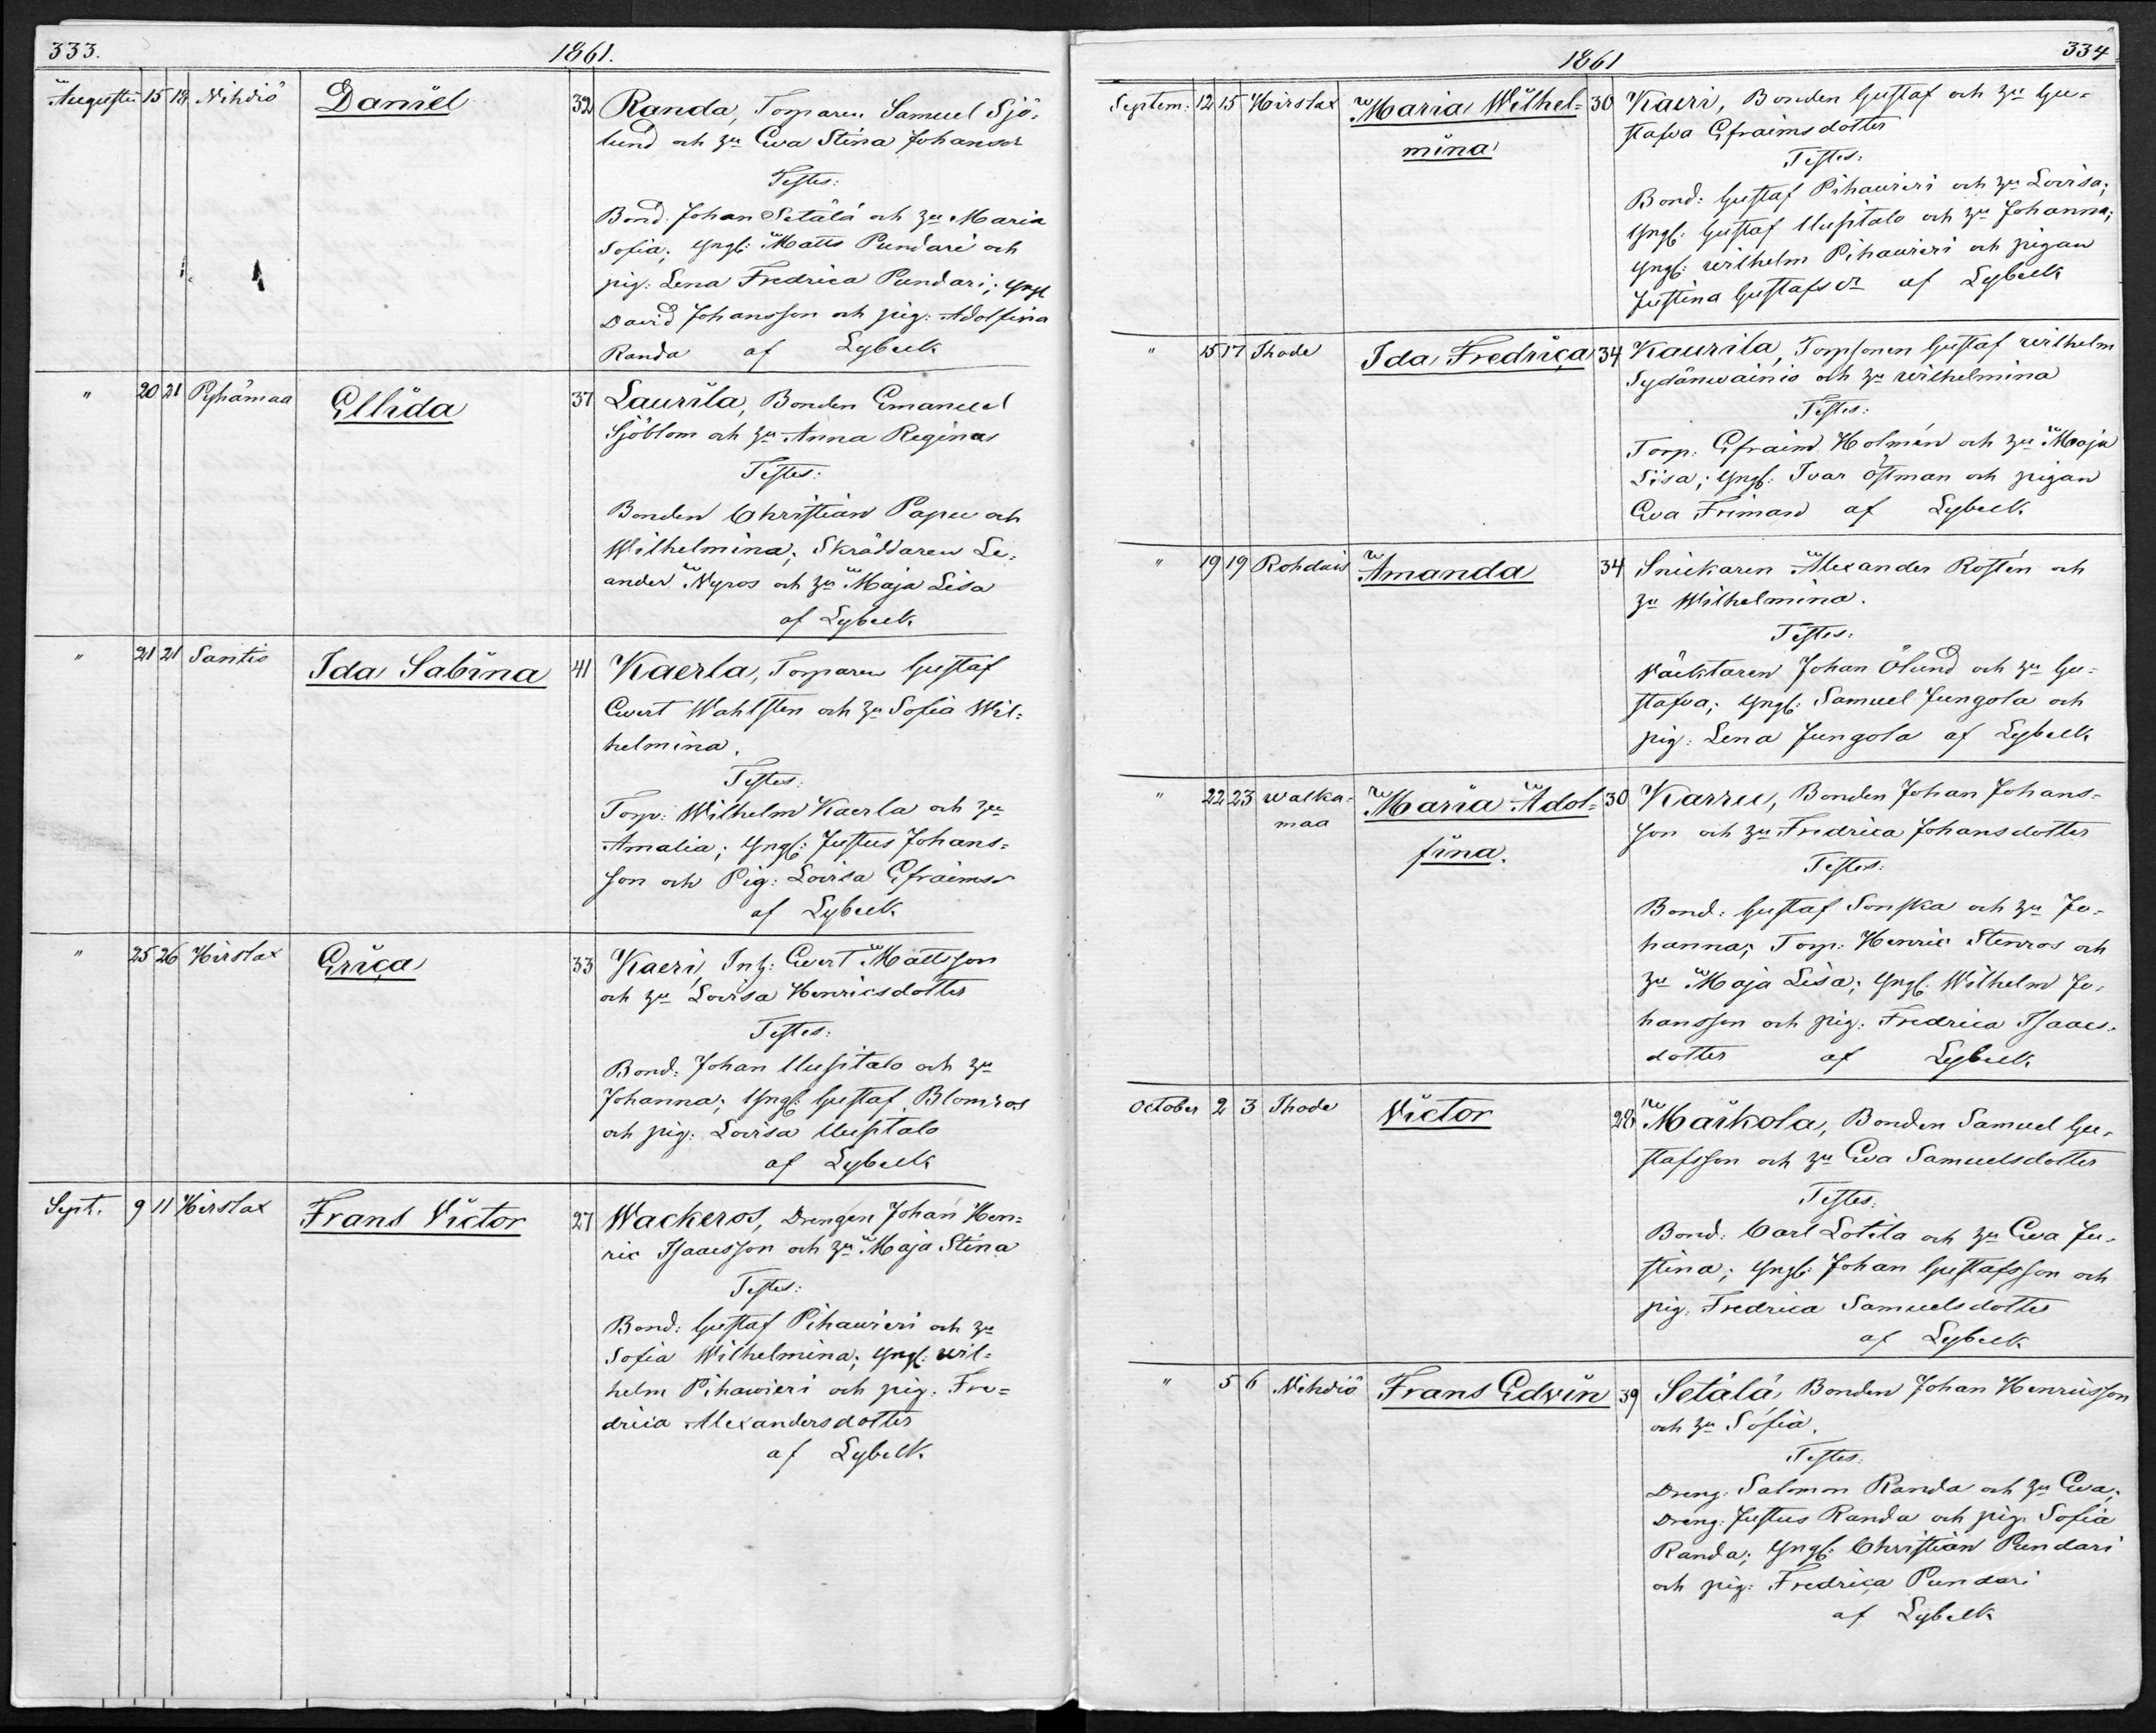 333.
1861.
Augusti 15 18 Nihdiö Daniel 32 Randa, Torparen Samuel Sjö=
lund och hu Ewa Stina Johansdr
Testes:
Bond: Johan Setälä och hu Maria
Sofia; Yngl: Matts Pundari och
pig: Lena Fredrica Pundari; Yngl
David Johansson och pig: Adolfina
Randa af Lybeck
" 20 21 Pyhämaa Ellida 37 Laurila, Bonden Emanuel
Sjöblom och hu Anna Regina
Testes:
Bonden Christian Papu och
Wilhelmina; Skräddaren Le=
ander Nyros och hu Maja Lisa
af Lybeck
" 21 21 Santio Ida Sabina 41 Kaerla, Torparen Gustaf
Ewert Wahlsten och hu Sofia Wil=
helmina.
Testes:
Torp: Wilhelm Kaerla och hu
Amalia; Yngl: Justus Johans=
son och Pig: Lovisa Efraimsdr
af Lybeck
" 25 26 Hirslax Erica 33 Kaeri, Inh: Ewert Mattsson
och hu Lovisa Henricsdotter
Testes:
Bond: Johan Uusitalo och hu
Johanna; Yngl: Gustaf Blomros
och pig: Lovisa Uusitalo
af Lybeck
Sept. 9 11 Hirslax Frans Victor 27 Wackeros, Drengen Johan Hen=
ric Isaacsson och hu Maja Stina
Testes:
Bond: Gustaf Pihawieri och hu
Sofia Wilhelmina; Yngl: Wil=
helm Pihawieri och pig: Fre=
drica Alexandersdotter
af Lybeck
1861
334
Septem: 12 15 Hirslax Maria Wilhel= 30 Kaeri, Bonden Gustaf och hu Gu=
mina stafva Efraimsdotter
Testes:
Bond: Gustaf Pihawieri och hu Lovisa;
Yngl: Gustaf Uusitalo och hu Johanna;
Yngl: Wilhelm Pihawieri och pigan
Justina Gustafsdr af Lybeck
" 15 17 Ihode Ida Fredrica 34 Kaurila, Torpsonen Gustaf Wilhelm
Sydänwainio och hu Wilhelmina
Testes:
Torp: Efraim Holmén och hu Maja
Lisa; Yngl: Ivar Östman och pigan
Ewa Friman af Lybeck
" 19 19 Rohdais Amanda 34 Snickaren Alexander Rostén och
hu Wilhelmina.
Testes:
Väcktaren Johan Ölund och hu Gu=
stafva; Yngl: Samuel Jungola och
pig: Lena Jungola af Lybeck
" 22 23 Walka= Maria Adol= 30 Karru, Bonden Johan Johans=
maa fina. son och hu Fredrica Johansdotter
Testes:
Bond: Gustaf Sonska och hu Jo=
hanna; Torp: Henric Stenros och
hu Maja Lisa; Yngl: Wilhelm Jo=
hansson och pig: Fredrica Isaacs=
dotter af Lybeck
October 2 3 Ihode Victor 28 Mäikola, Bonden Samuel Gu=
stafsson och hu Ewa Samuelsdotter
Testes:
Bond: Carl Lotila och hu Ewa Ju=
stina; Yngl: Johan Gustafsson och
pig: Fredrica Samuelsdotter
af Lybeck
" 5 6 Nihdiö Frans Edvin 39 Setälä, Bonden Johan Henricsson
och hu Sofia.
Testes:
Dreng: Salomon Randa och hu Ewa;
Dreng: Justus Randa och pig: Sofia
Randa; Yngl: Christian Pundari
och pig: Fredrica Pundari
af Lybeck